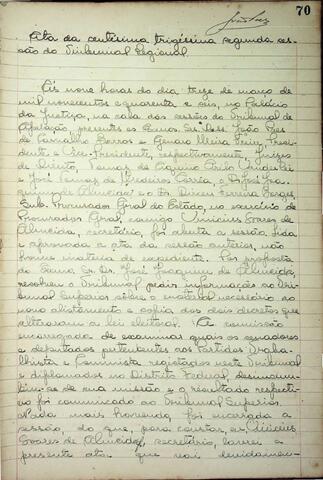 70
Ata da centésima trigésima segunda ses-
são do Tribunal Regional.
Às nove horas do dia treze de março de
mil novecentos e quarenta e seis, no Palácio
da Justiça, na sala das sessões do Tribunal de
Apelação, presentes os Exmos. Srs. Desr. João Paes
de Carvalho Barros e Genaro Freire, Presi-
dente e Vice-Presidente, respectivamente, Juizes
de Direito, Tomaz de Aquino Cirilo Wanderlei
e José Ferraz de Medeiros Correia, e Dr. José Joa-
quim de Almeida e o Dr. Dirceu Ferreira Borges,
Sub-Procurador Geral do Estado, no exercício de
Procurador Geral, comigo Vinicius Soares de
Almeida, secretário, foi aberta a sessão, lida
e aprovada a ata da sessão anterior, não
houve matéria de expediente. Por proposta
do Exmo. Sr. Dr. José Joaquim de Almeida,
resolveu o Tribunal pedir informações ao Tri-
bunal Superior sôbre o material necessário ao
novo alistamento e cópia dos dois decretos que
alteraram a lei eleitoral. A comissão
encarregada de examinar quais os senadores
e deputados pertencentes aos Partidos Traba-
lhista e Comunista, registados neste Tribunal
e diplomados no Distrito Federal, desincum-
biu-se de sua missão e o resultado respecti-
vo foi comunicado ao Tribunal Superior.
Nada mais havendo, foi encerrada a
sessão, do que, para constar, eu Vinicius
Soares de Almeida, secretário, lavrei a
presente ata que vai devidamen-